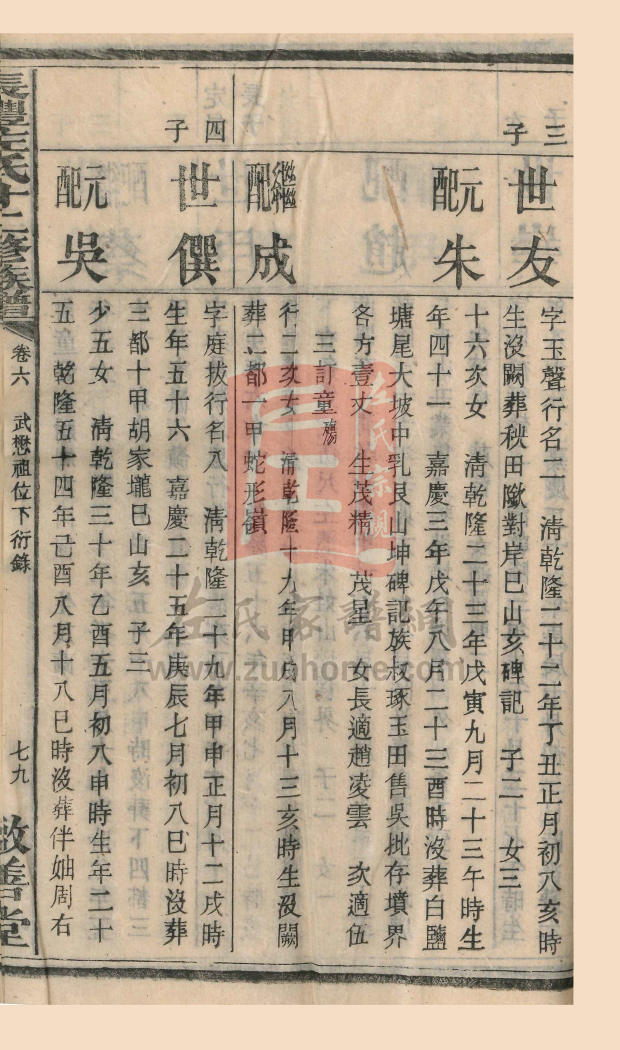 三子
世友
字玉聲行名二　清乾隆二十二年丁丑正月初八亥時
生沒闕葬秋田歞對岸巳山亥碑記　子二　女三
元配朱
十六次女　清乾隆二十三年戊寅九月二十三午時生
年四十一　嘉慶三年戊午八月二十三酉時沒葬白鹽
塘尾大坡中乳艮山坤碑記族叔琢玉田售吳批存墳界
各方壹丈　生茂精　茂呈　女長適趙凌雲　次適伍
三訂童殤
繼配成
行二次女　清乾隆十九年甲戌八月十三亥時生沒闕
葬二都一甲蛇形嶺
四子
世僎
字庭拔行名入行　清乾隆二十九年甲申正月十二戌時
生年五十六　嘉慶二十五年庚辰七月初八巳時沒葬
三都十甲胡家壠巳山亥　子三
元配吳
少五女　清乾隆三十年乙酉五月初八申時生年二十
五　乾隆五十四年己酉八月十八巳時沒葬伴妯周右
長豐左氏十二修族譜
卷六　武懋祖位下衍錄
七九
敬善堂
左氏宗親
左氏家譜網
www.zuohome.com